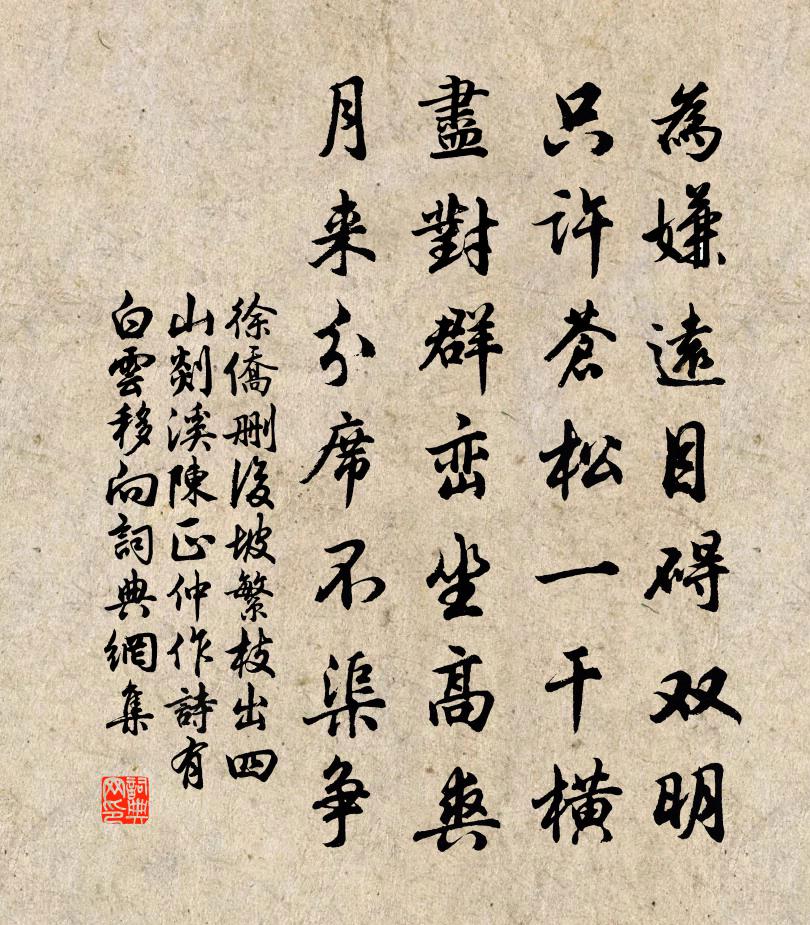 為嫌遠目碍双明
只許蒼松一干橫
盡對群峦坐高爽
月来分席不渠争
徐僑删後坡繁枝出四
山剡溪陳正仲作詩有
白雲移向詞典網集
詞典
网印